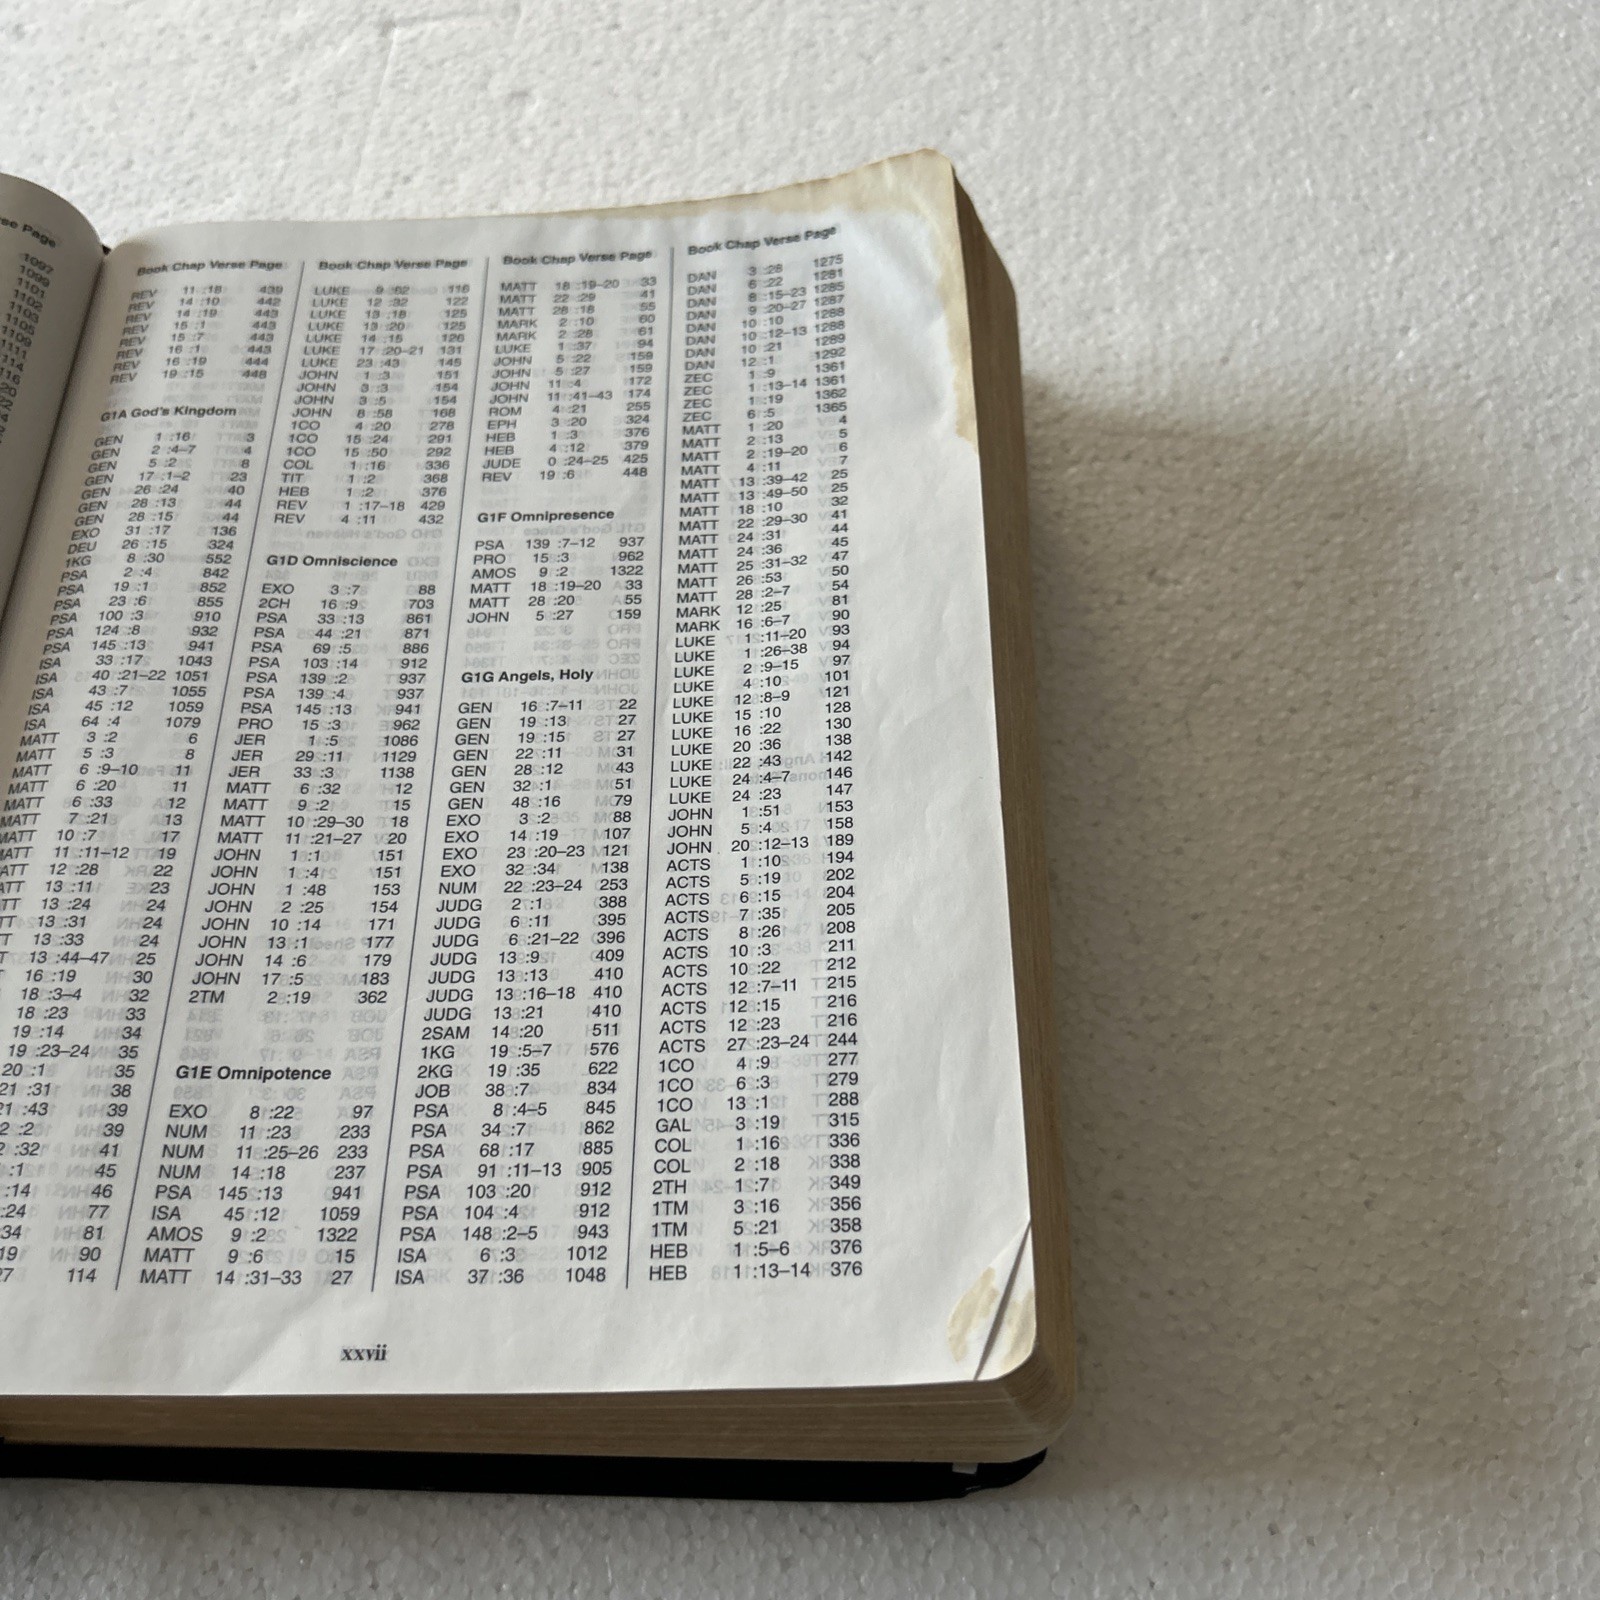 se Page
1097
1099
1101
1102
1103
1105
1109
1111
Book Chap Verse Page
REV 11 :18 439
REV 14 :10 442
REV 14 :19 443
REV 15 :1 443
REV 15 :7 443
REV 16 :1 443
REV 16 :19 444
REV 19 :15 448
G1A God's Kingdom
GEN 1 :16 3
GEN 2 :4–7 4
GEN 5 :2 8
GEN 17 :1–2 23
GEN 26 :24 40
GEN 28 :13 44
GEN 28 :15 44
EXO 31 :17 136
DEU 26 :15 324
1KG 8 :30 552
PSA 2 :4 842
PSA 19 :1 852
PSA 23 :6 855
PSA 100 :3 910
PSA 124 :8 932
PSA 145 :13 941
ISA 33 :17 1043
ISA 40 :21–22 1051
ISA 43 :7 1055
ISA 45 :12 1059
ISA 64 :4 1079
MATT 3 :2 6
MATT 5 :3 8
MATT 6 :9–10 11
MATT 6 :20 11
MATT 6 :33 12
MATT 7 :21 13
MATT 10 :7 17
ATT 11 :11–12 19
ATT 12 :28 22
ATT 13 :11 23
TT 13 :24 24
TT 13 :31 24
T 13 :33 24
T 13 :44–47 25
16 :19 30
18 :3–4 32
18 :23 33
19 :14 34
19 :23–24 35
20 :1 35
21 :31 38
21 :43 39
2 :2 39
2 :32 41
:1 45
:14 46
:24 77
34 81
19 90
27 114
Book Chap Verse Page
LUKE 9 :62 116
LUKE 12 :32 122
LUKE 13 :18 125
LUKE 13 :20 125
LUKE 14 :15 126
LUKE 17 :20–21 131
LUKE 23 :43 145
JOHN 1 :3 151
JOHN 3 :3 154
JOHN 3 :5 154
JOHN 8 :58 168
1CO 4 :20 278
1CO 15 :24 291
1CO 15 :50 292
COL 1 :16 336
TIT 1 :2 368
HEB 1 :2 376
REV 1 :17–18 429
REV 4 :11 432
G1D Omniscience
EXO 3 :7 88
2CH 16 :9 703
PSA 33 :13 861
PSA 44 :21 871
PSA 69 :5 886
PSA 103 :14 912
PSA 139 :2 937
PSA 139 :4 937
PSA 145 :13 941
PRO 15 :3 962
JER 1 :5 1086
JER 29 :11 1129
JER 33 :3 1138
MATT 6 :32 12
MATT 9 :2 15
MATT 10 :29–30 18
MATT 11 :21–27 20
JOHN 1 :1 151
JOHN 1 :4 151
JOHN 1 :48 153
JOHN 2 :25 154
JOHN 10 :14 171
JOHN 13 :1 177
JOHN 14 :6 179
JOHN 17 :5 183
2TM 2 :19 362
G1E Omnipotence
EXO 8 :22 97
NUM 11 :23 233
NUM 11 :25–26 233
NUM 14 :18 237
PSA 145 :13 941
ISA 45 :12 1059
AMOS 9 :2 1322
MATT 9 :6 15
MATT 14 :31–33 27
Book Chap Verse Page
MATT 18 :19–20 33
MATT 22 :29 41
MATT 28 :18 55
MARK 2 :10 60
MARK 2 :28 61
LUKE 1 :37 94
JOHN 5 :22 159
JOHN 5 :27 159
JOHN 11 :4 172
JOHN 11 :41–43 174
ROM 4 :21 255
EPH 3 :20 324
HEB 1 :3 376
HEB 4 :12 379
JUDE 0 :24–25 425
REV 19 :6 448
G1F Omnipresence
PSA 139 :7–12 937
PRO 15 :3 962
AMOS 9 :2 1322
MATT 18 :19–20 33
MATT 28 :20 55
JOHN 5 :27 159
G1G Angels, Holy
GEN 16 :7–11 22
GEN 19 :13 27
GEN 19 :15 27
GEN 22 :11 31
GEN 28 :12 43
GEN 32 :1 51
GEN 48 :16 79
EXO 3 :2 88
EXO 14 :19 107
EXO 23 :20–23 121
EXO 32 :34 138
NUM 22 :23–24 253
JUDG 2 :1 388
JUDG 6 :11 395
JUDG 6 :21–22 396
JUDG 13 :9 409
JUDG 13 :13 410
JUDG 13 :16–18 410
JUDG 13 :21 410
2SAM 14 :20 511
1KG 19 :5–7 576
2KG 19 :35 622
JOB 38 :7 834
PSA 8 :4–5 845
PSA 34 :7 862
PSA 68 :17 885
PSA 91 :11–13 905
PSA 103 :20 912
PSA 104 :4 912
PSA 148 :2–5 943
ISA 6 :3 1012
ISA 37 :36 1048
Book Chap Verse Page
DAN 3 :28 1275
DAN 6 :22 1281
DAN 8 :15–23 1285
DAN 9 :20–27 1287
DAN 10 :10 1288
DAN 10 :12–13 1288
DAN 10 :21 1289
DAN 12 :1 1292
ZEC 1 :9 1361
ZEC 1 :13–14 1361
ZEC 1 :19 1362
ZEC 6 :5 1365
MATT 1 :20 4
MATT 2 :13 5
MATT 2 :19–20 6
MATT 4 :11 7
MATT 13 :39–42 25
MATT 13 :49–50 25
MATT 18 :10 32
MATT 22 :29–30 41
MATT 24 :31 44
MATT 24 :36 45
MATT 25 :31–32 47
MATT 26 :53 50
MATT 28 :2–7 54
MARK 12 :25 81
MARK 16 :6–7 90
LUKE 1 :11–20 93
LUKE 1 :26–38 94
LUKE 2 :9–15 97
LUKE 4 :10 101
LUKE 12 :8–9 121
LUKE 15 :10 128
LUKE 16 :22 130
LUKE 20 :36 138
LUKE 22 :43 142
LUKE 24 :4–7 146
LUKE 24 :23 147
JOHN 1 :51 153
JOHN 5 :4 158
JOHN 20 :12–13 189
ACTS 1 :10 194
ACTS 5 :19 202
ACTS 6 :15 204
ACTS 7 :35 205
ACTS 8 :26 208
ACTS 10 :3 211
ACTS 10 :22 212
ACTS 12 :7–11 215
ACTS 12 :15 216
ACTS 12 :23 216
ACTS 27 :23–24 244
1CO 4 :9 277
1CO 6 :3 279
1CO 13 :1 288
GAL 3 :19 315
COL 1 :16 336
COL 2 :18 338
2TH 1 :7 349
1TM 3 :16 356
1TM 5 :21 358
HEB 1 :5–6 376
HEB 1 :13–14 376
xxvii